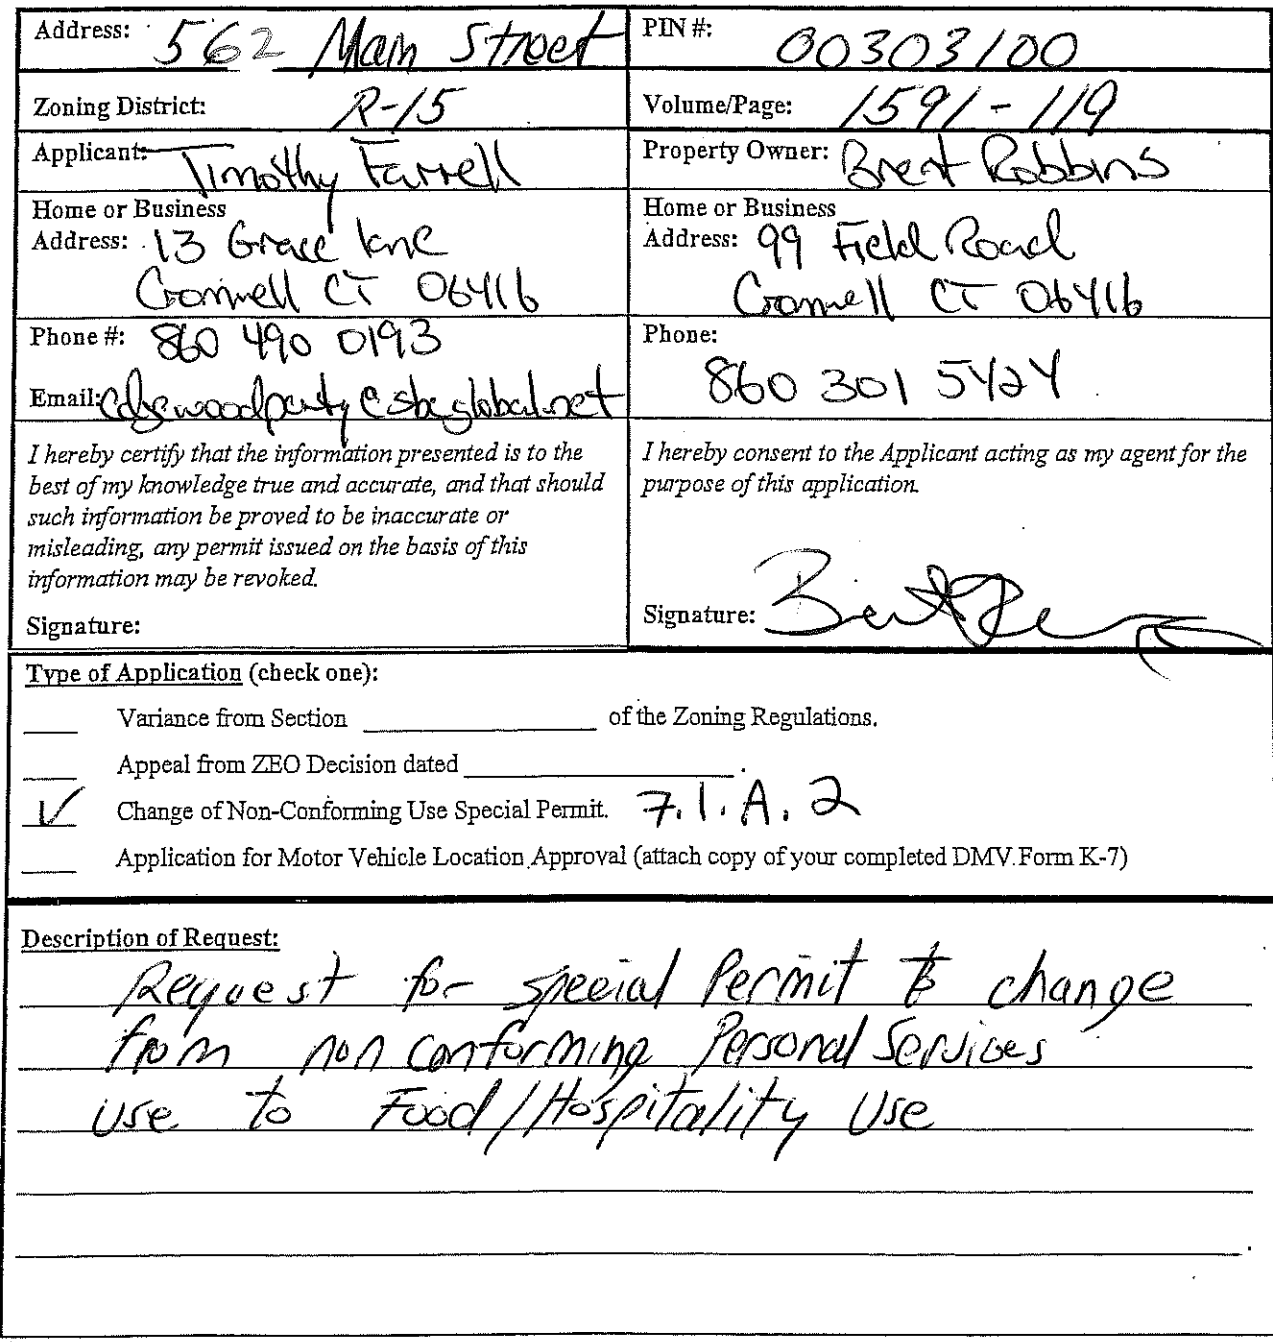 Address: 562 Main Street
PIN #: 00303100
Zoning District: R-15
Volume/Page: 1591-119
Applicant: Timothy Farrell
Property Owner: Brent Robbins
Home or Business
Address: 13 Grace lane
Cromwell CT 06416
Home or Business
Address: 99 Field Road
Cromwell CT 06416
Phone #: 860 490 0193
Phone:
860 301 5424
Email: edgewoodparty@sbcglobal.net
I hereby certify that the information presented is to the
best of my knowledge true and accurate, and that should
such information be proved to be inaccurate or
misleading, any permit issued on the basis of this
information may be revoked.
Signature:
I hereby consent to the Applicant acting as my agent for the
purpose of this application.
Signature:
Type of Application (check one):
Variance from Section of the Zoning Regulations.
Appeal from ZEO Decision dated .
Change of Non-Conforming Use Special Permit. 7.1.A.2
Application for Motor Vehicle Location Approval (attach copy of your completed DMV Form K-7)
Description of Request:
Request for special Permit to change
from non conforming Personal Services
use to Food/Hospitality Use